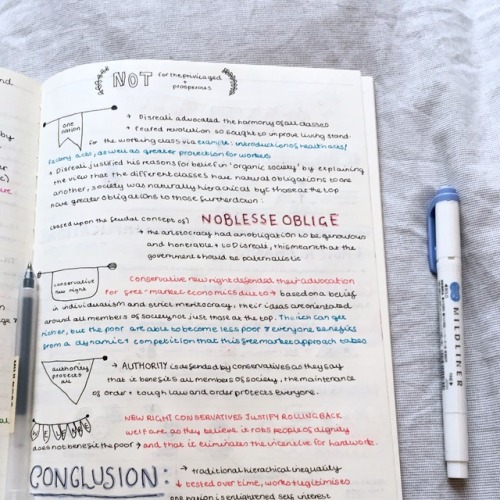 NOT for the privileged
+ prosperous
one nation
→ Disreali advocated the harmony of all classes
+ feared revolution so sought to improve living stand.
for the working class via example: introduction of health acts/
factory acts, as well as greater protection for workers
→ Disreali justified his reasons for belief in 'organic society' by explaining
the view that the different classes have natural obligations to one
another, society was naturally hierachical by: those at the top
have greater obligations to those further down:
(based upon the feudal concept of) NOBLESSE OBLIGE
→ the aristocracy had an obligation to be generous
and honerable → to Disreali, this meant that the
government should be paternalistic
conservative new right
conservative new right defended their advocation
for free-market economics due to → based on a belief
in individualism and strict meritocracy, their ideas are orientated
around all members of society not just those at the top. The rich can get
richer, but the poor are able to become less poor + everyone benefits
from a dynamic + competition that this free market approach
authority protects all
→ AUTHORITY is defended by conservatives as they say
that it benefits all members of society, the maintenance
of order + tough law and order protects everyone.
NEW RIGHT CONSERVATIVES JUSTIFY ROLLING BACK
welfare as they believe it robs people of dignity
does not benefit the poor → and that it eliminates the incentive for hardwork.
CONCLUSION:
→ traditional hierachical inequality
↓ tested over time, works + legitimises
one nation is enlightened self interest
MILDLINER